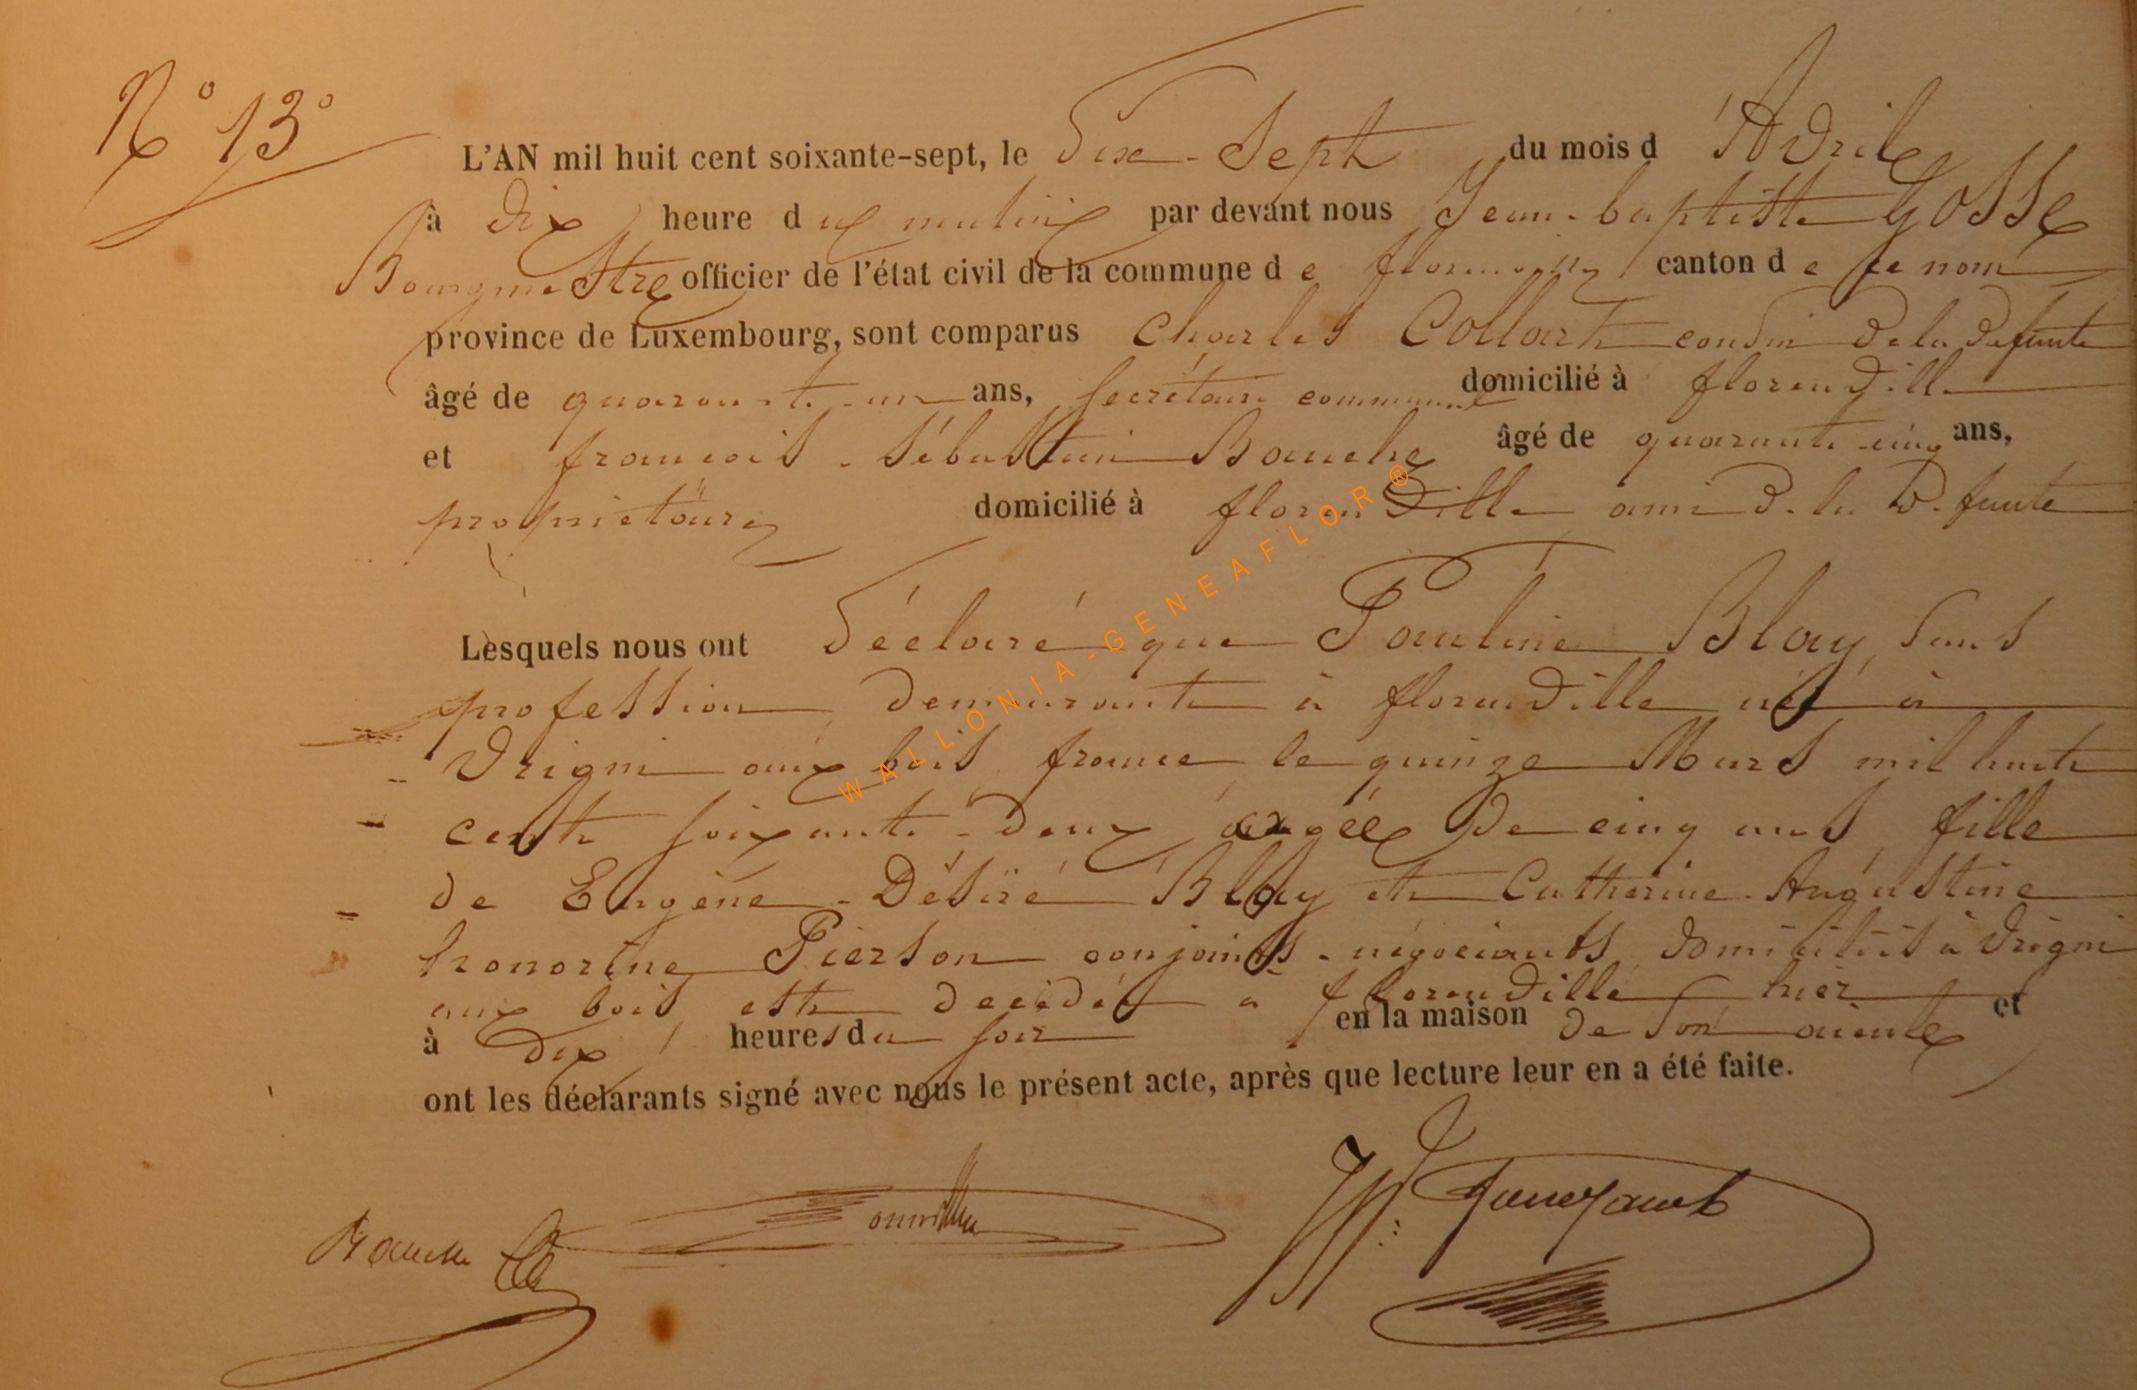 N° 13°
L'AN mil huit cent soixante-sept, le Dix-Sept du mois d'Avril
à dix heure du matin par devant nous Jean-baptiste Gosse
Bourgmestre officier de l'état civil de la commune de florenville canton de ce nom
province de Luxembourg, sont comparus Charles Collart cousin de la defunte
âgé de quarante-un ans, secrétaire communal domicilié à florenville
et francois-sébastien Bauche âgé de quarante-cinq ans,
propriétaire domicilié à florenville ami de la defunte
Lesquels nous ont déclaré que Pauline Blay, sans
profession demeurante à florenville née à
Vrigni aux bois france le quinze Mars mil huit
cent soixante-deux, agée de cinq ans, fille
de Eugène-Désiré Blay et Catherine Augustine
honorine Pierson conjoints-négociants domiciliés à Vrigni
aux bois est decédée a florenville hier
à dix heures du soir en la maison de son et
ont les déclarants signé avec nous le présent acte, après que lecture leur en a été faite.
Bauche
WALLONIA-GENEAFLOR®